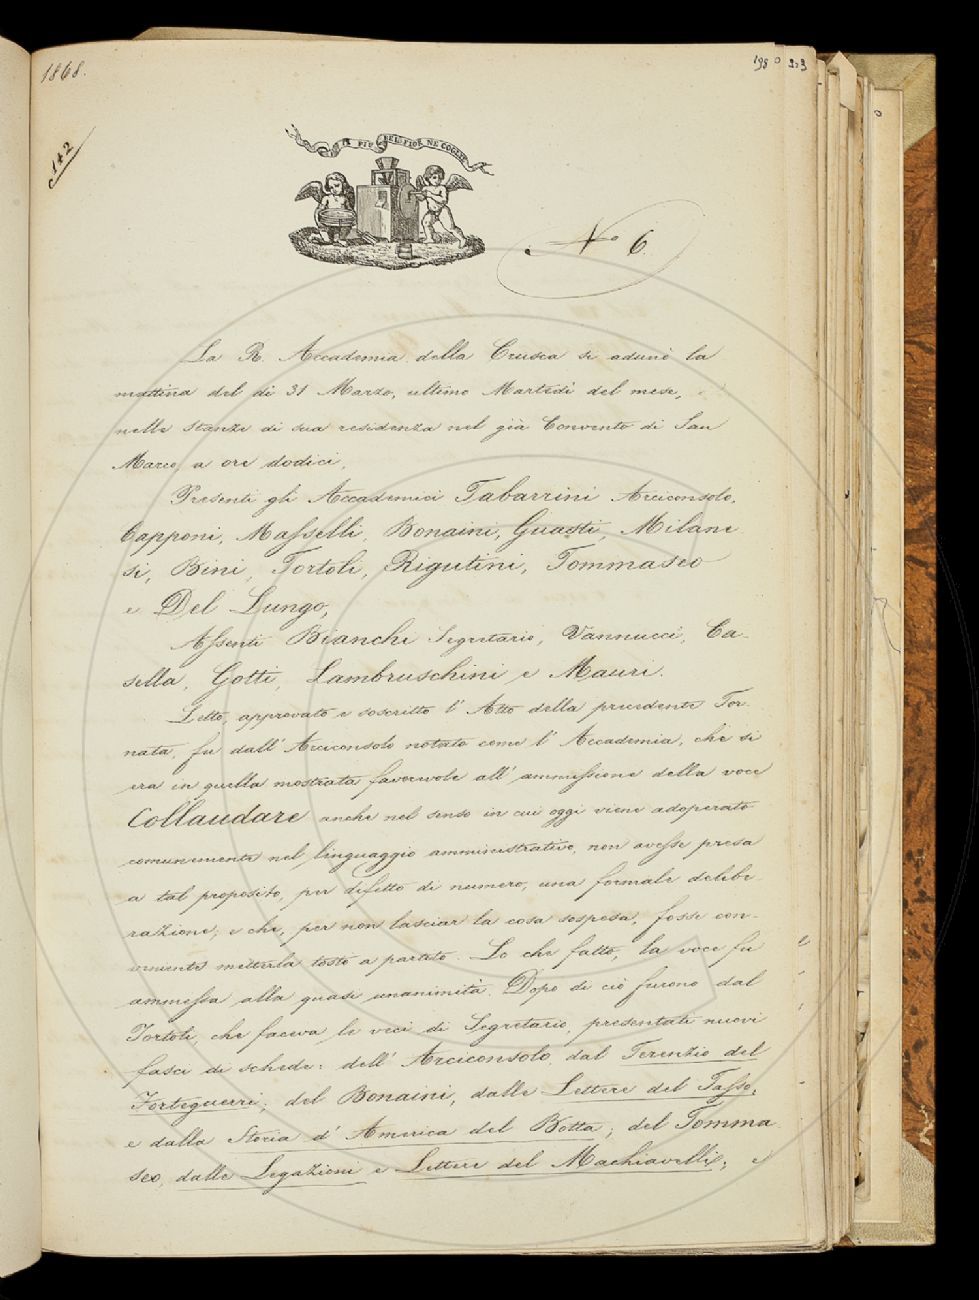 1868.
142
IL PIÙ BEL FIOR NE COGLIE
N.o 6.
La R. Accademia della Crusca si adunò la
mattina del dì 31 Marzo, ultimo Martedì del mese,
nelle stanze di sua residenza nel già Convento di San
Marco, a ore dodici.
Presenti gli Accademici Tabarrini Arciconsolo,
Capponi, Masselli, Bonaini, Guasti, Milane
si, Bini, Tortoli, Rigutini, Tommaseo
e Del Lungo,
Assenti Bianchi Segretario, Vannucci, Ca-
sella, Gotti, Lambruschini e Mauri.
Letto, approvato e soscritto l' Atto della precedente Tor-
nata, fu dall' Arciconsolo notato come l' Accademia, che si
era in quella mostrata favorevole all' ammissione della voce
Collaudare anche nel senso in cui oggi viene adoperato
comunemente nel linguaggio amministrativo, non avesse presa
a tal proposito, per difetto di numero, una formale delibe-
razione; e che, per non lasciar la cosa sospesa, fosse con-
veniente metterla tosto a partito. Lo che fatto, la voce fu
ammessa alla quasi unanimità. Dopo di ciò furono dal
Tortoli, che faceva le veci di Segretario, presentati nuovi
fasci di schede: dell' Arciconsolo, dal Terenzio del
Forteguerri; del Bonaini, dalle Lettere del Tasso,
e dalla Storia d' America del Botta; del Tomma
seo, dalle Legazioni e Lettere del Machiavelli; e